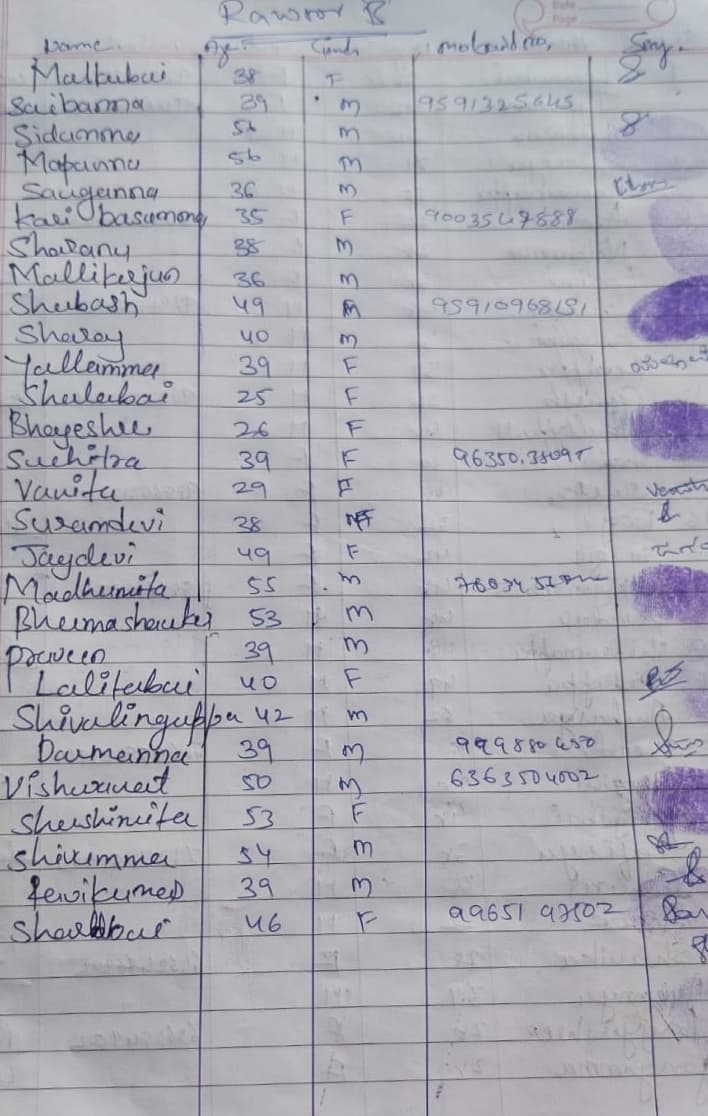 Rawoor B
Date
Page
Name. Age. Gend. mobail no, Sing.
Malkubai 38 F
Saibanna 39 m 9591325645
Sidamma 56 m
Mapanna 56 m
Sanganna 36 m
Kari basamma 35 F 9003547888
Sharanu 38 m
Mallikarjun 36 m
Shubash 49 m 9591096815
Sharay 40 m
Yallamma 39 F
Shalabai 25 F
Bhageshu 26 F
Suchitra 39 F
Vanita 29 F
Suramdevi 38 F
Jaydevi 49 F
Madhumita 55 m
Bhimashanker 53 m
Praveen 39 m
Lalitabai 40 F
Shivalingappa 42 m
Darmanna 39 m 999880450
Vishwanat 50 m 6363504002
Shashimita 53 F
Shivamma 54 m
Ravikumar 39 m
Sharabai 46 F 9965197502